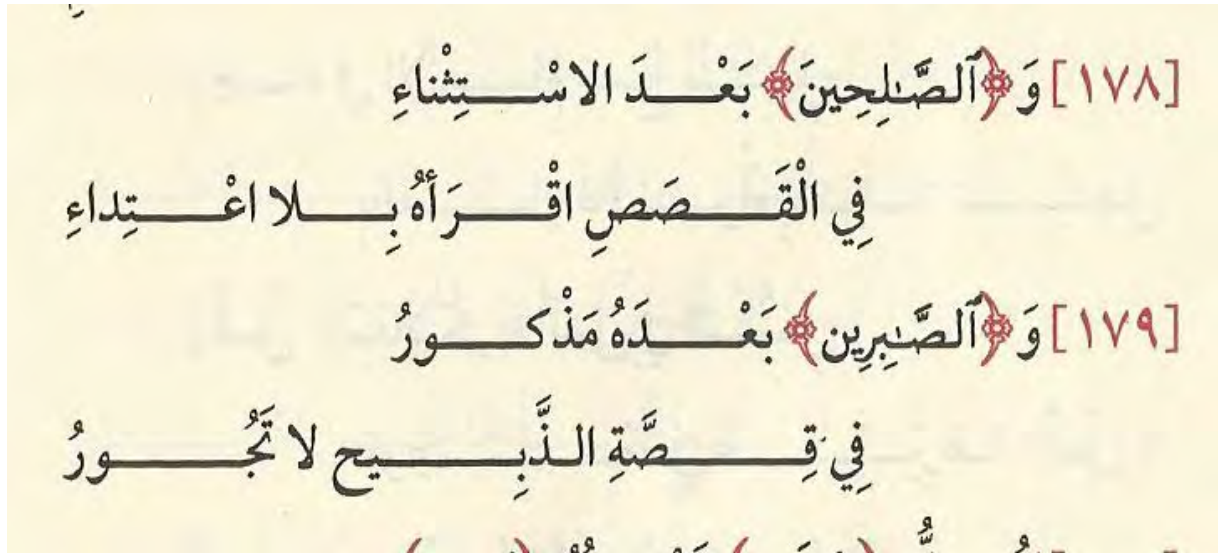 [١٧٨] وَ ﴿ٱلصَّـٰلِحِينَ﴾ بَعْدَ الاسْتِثْناءِ
فِي الْقَصَصِ اقْرَأهُ بِلا اعْتِداءِ
[١٧٩] وَ ﴿ٱلصَّـٰبِرِين﴾ بَعْدَهُ مَذْكورُ
فِي قِصَّةِ الذَّبِيح لا تَجُورُ